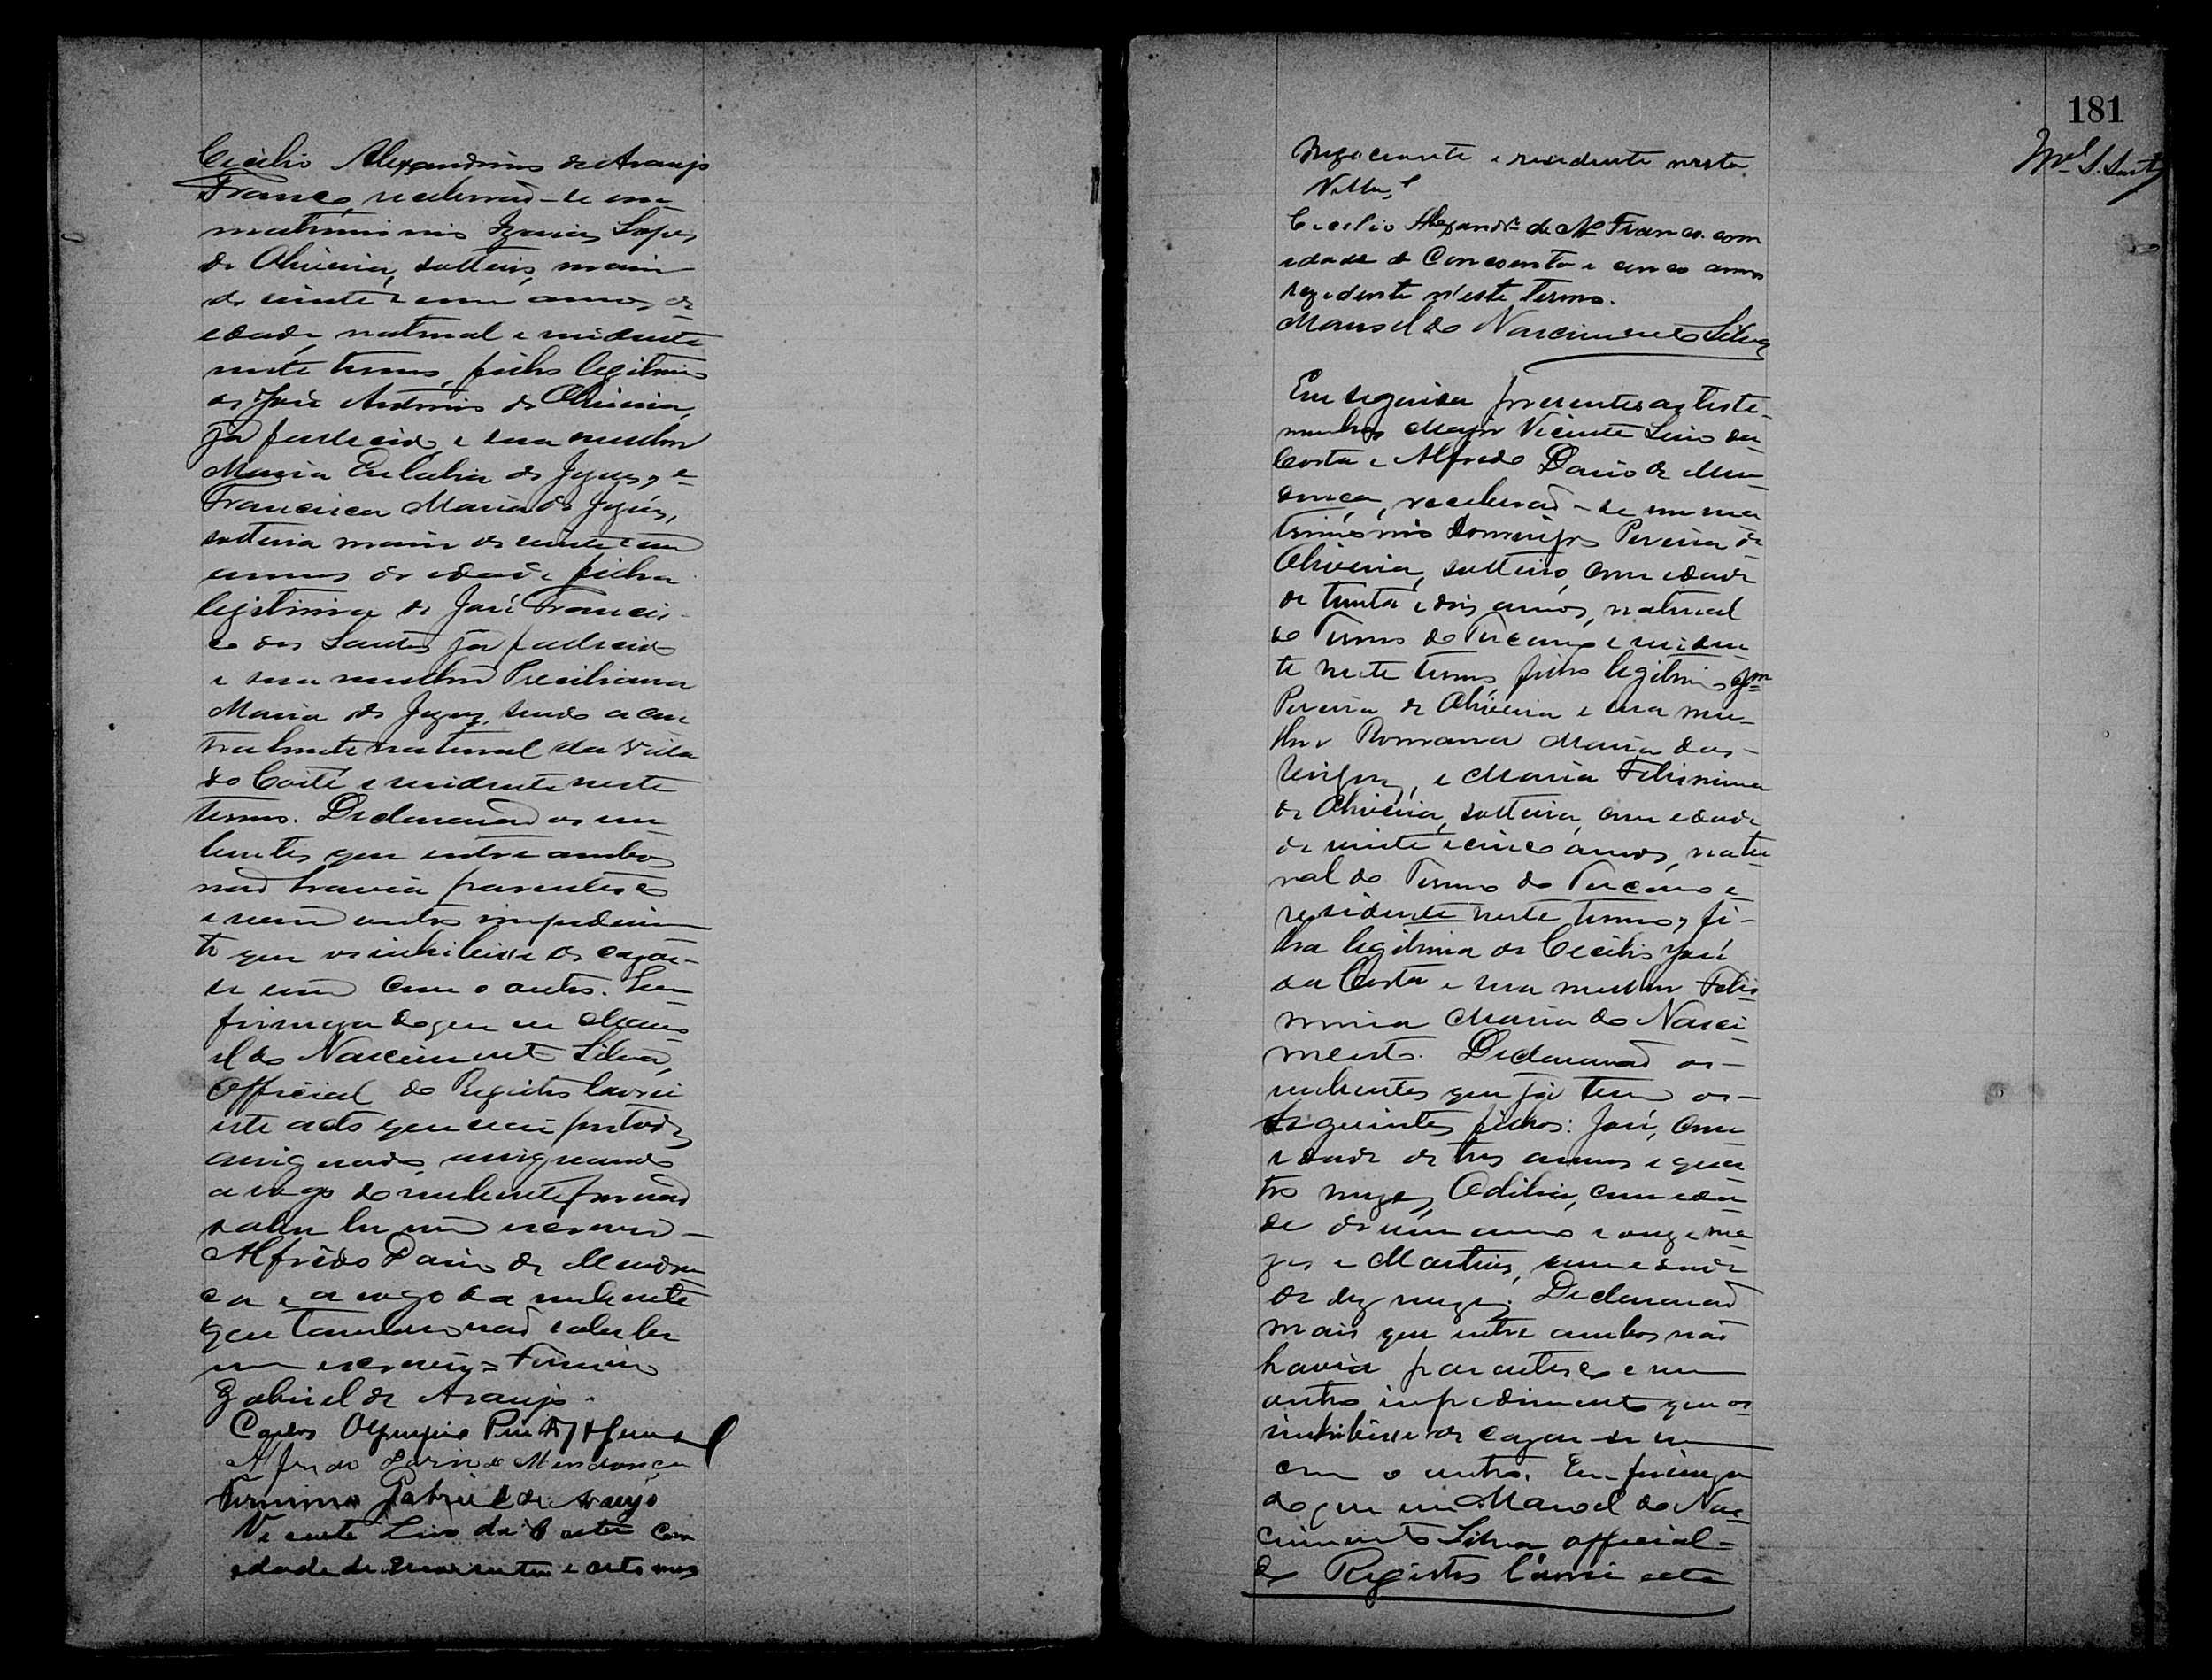 Cecilio Alexandrino de Araujo
Franco, receberaõ-se em
matrimonio Izaias Lopes
de Oliveira, solteiro, maior
de vinte e um annos de
edade, natural e residente
neste termo, filho legitimo
de José Antonio de Oliveira,
já fallecido e sua mulher
Maria Eulalia de Jezus, e
Francisca Maria de Jezus,
solteira maior de vinte e um
annos de edade filha
legitima de José Francis-
co dos Santos já fallecido
e sua mulher Preciliana
Maria de Jezus, sendo a con
trahente natural da Villa
do Coité e residente neste
termo. Declararaõ os nu
bentes que entre ambos
naõ havia parentesco
e nem outro impedimen
to que os inhibisse de cazar-
se um com o outro. Em
firmeza do que eu Mano
el do Nascimento Silva,
Official do Registro lavrei
este acto que vai por todos
assignado, assignando
a rogo do nubente por naõ
saber ler nem escrever -
Alfrêdo Dario de Mendon
ça e a rogo da nubente
que tambem naõ sabe ler
nem escrever = Firmino
Gabriel de Araujo.
Carlos Olympio
Alfredo Dario de Mendonça
Firmino Gabriel de Araujo
Vicente Lino da Costa com
edade de Quarenta e oito annos
181
Mel S. Santos
Negociante e residente nesta
Villa,
Cecilio Alexandro de Ao Franco. com
edade de Concoenta e cinco annos
rezidente n'este Termo.
Manoel do Nascimento Silva
Em seguida presentes as teste-
munhas Major Vicente Lino da
Costa e Alfredo Dario de Men
donça, receberaõ-se em ma
trimonio Domingos Pereira de
Oliveira, solteiro, com edade
de trinta e dois annos, natural
do Termo do Tucano e residen
te neste termo, filho legitimo
Pereira de Oliveira e sua mu-
lher Romana Maria das-
Virgens, e Maria Felismina
de Oliveira, solteira, com edade
de vinte e cinco annos, natu
ral do Termo do Tucano e
residente neste termo, fi-
lha legitima de Cecilio José
da Costa e sua mulher Felis
mina Maria do Nasci
mento. Declararaõ os-
nubentes que já tem os-
seguintes filhos: José, com
edade de tres annos e qua
tro mezes, Odilia, com eda
de de um anno e onze me
zes e Martins, com edade
de dez mezes. Declararaõ
mais que entre ambos não
havia parentesco e nem
outro impedimento que os
inhibisse de cazar-se um
com o outro. Em firmeza
do que eu Manoel do Nas
cimento Silva official -
do Registro lavrei este